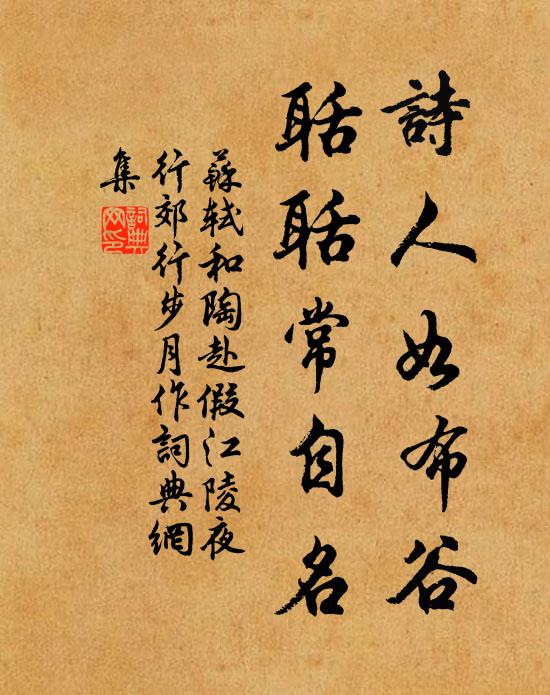 詩人如布谷
聒聒常自名
蘇軾和陶赴假江陵夜
行郊行步月作詞典網
集
詞典
網印